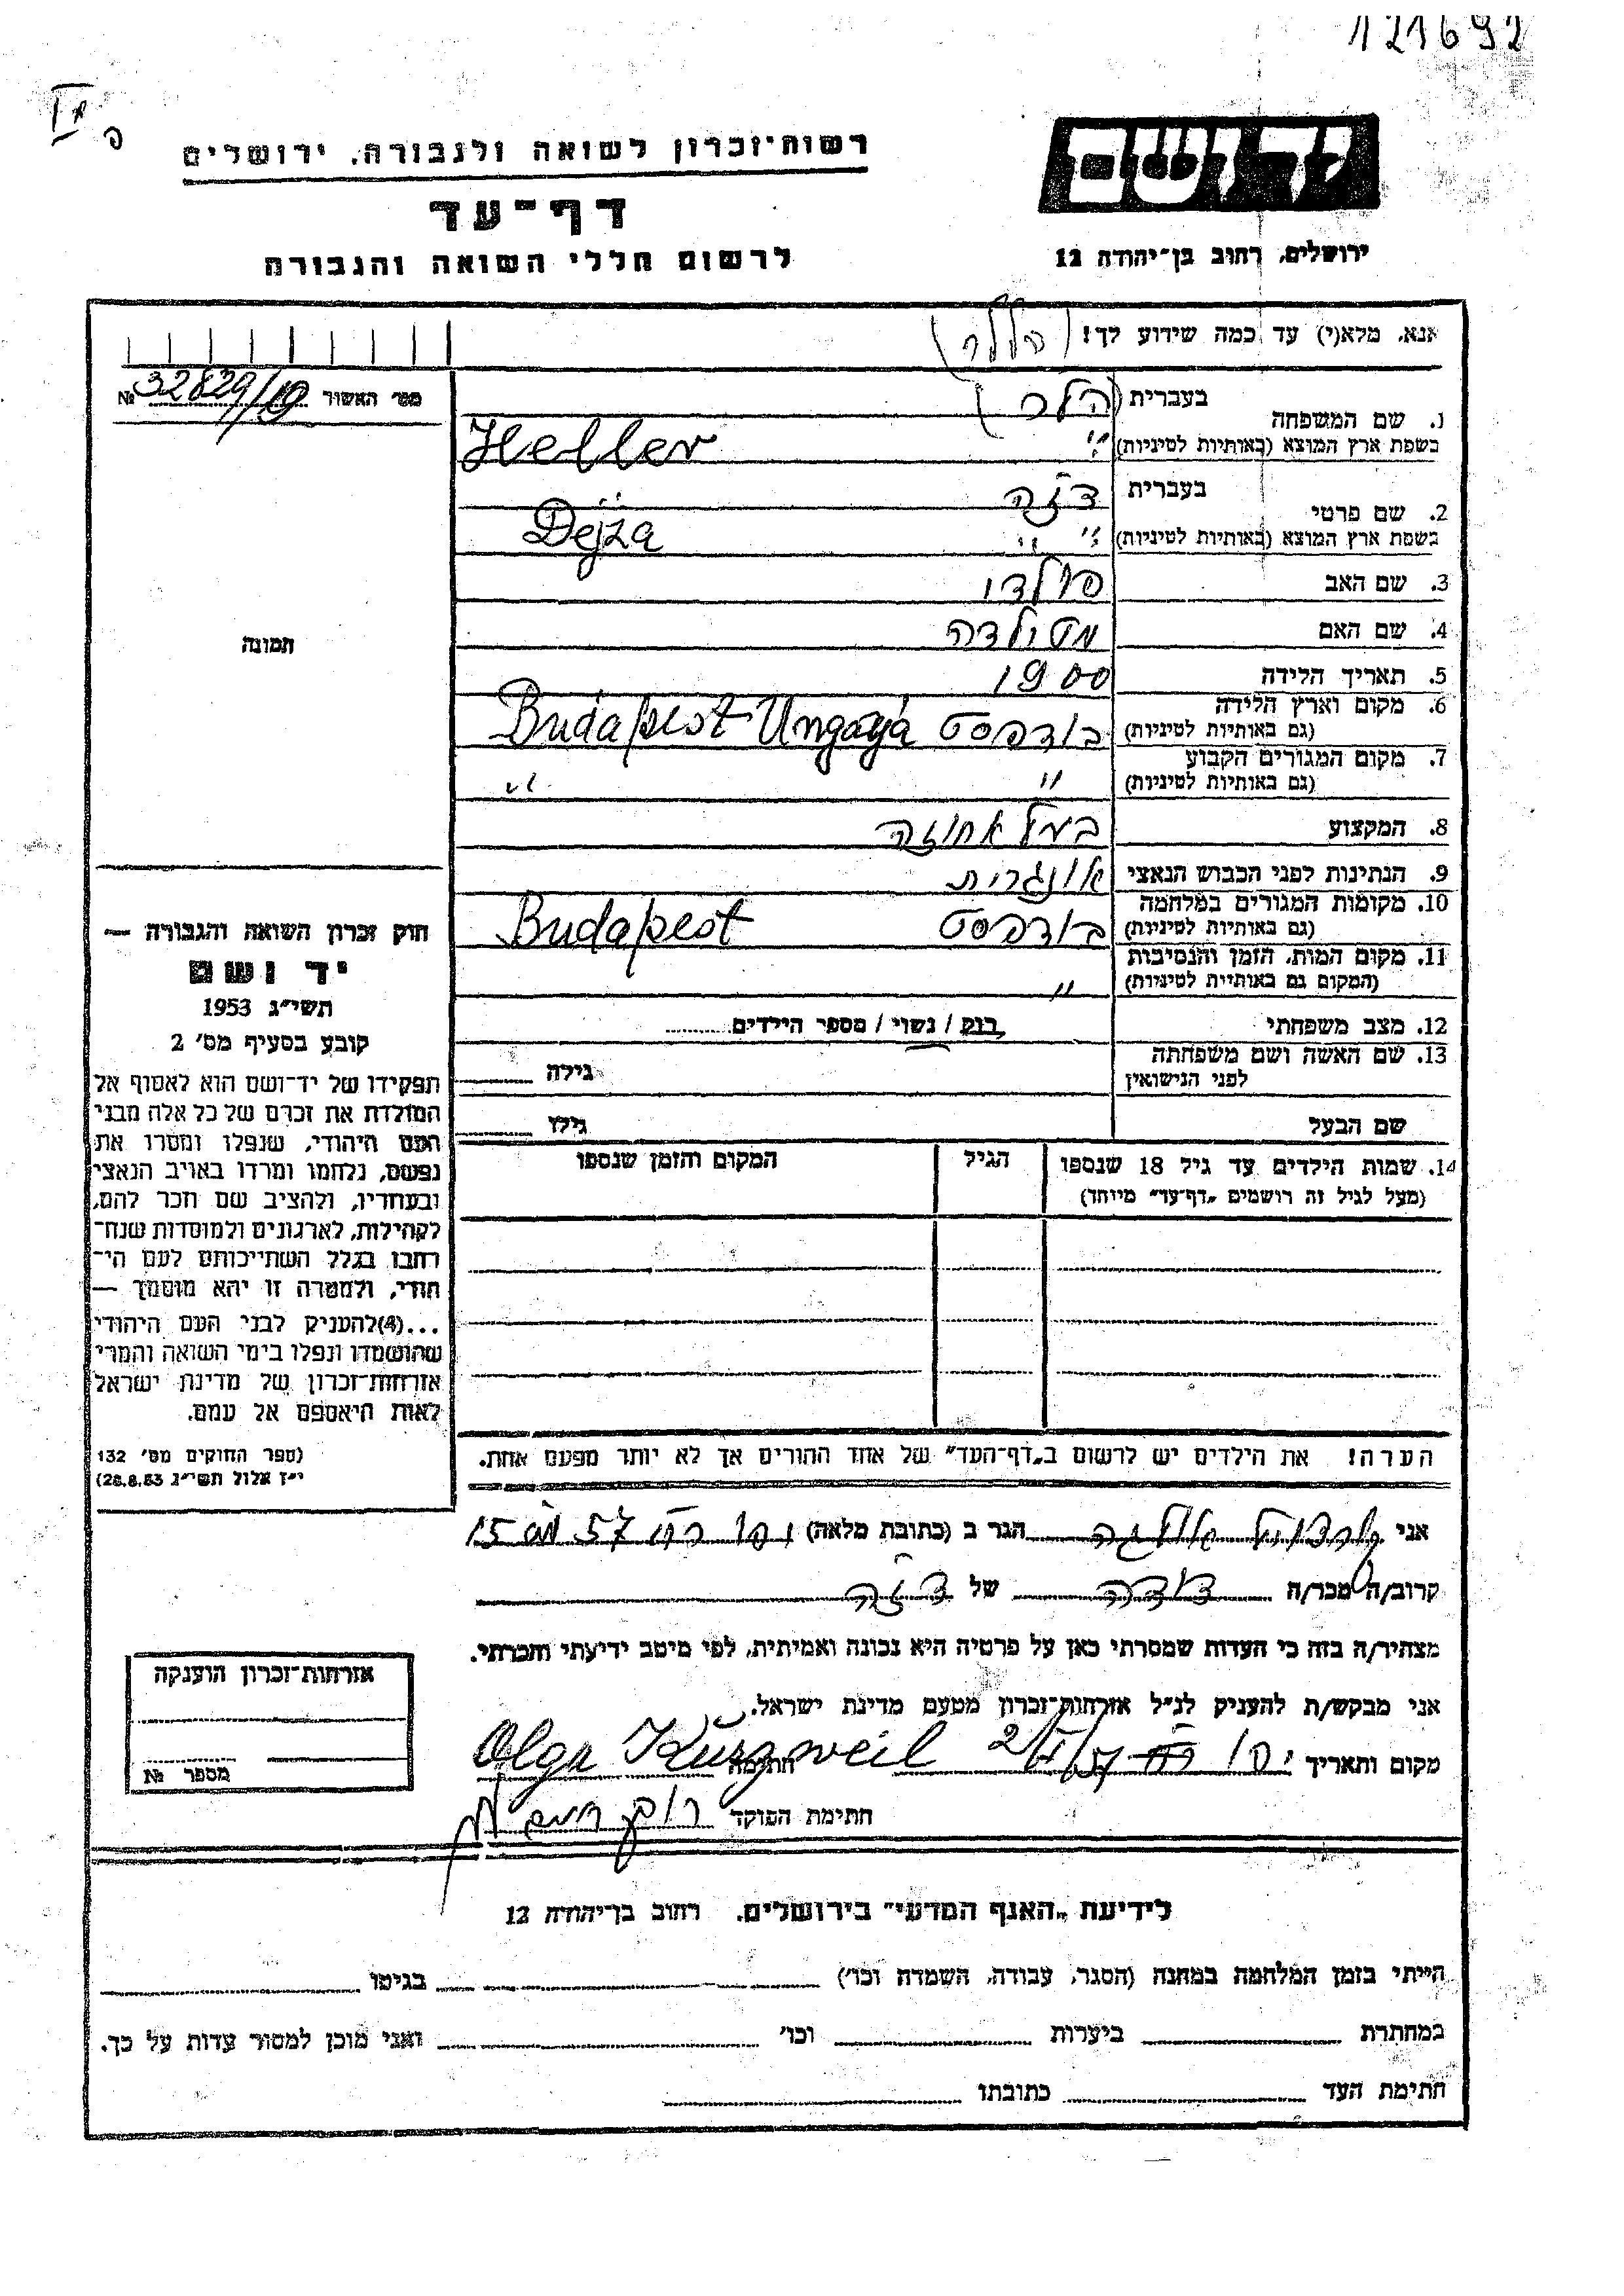 121692
רשות־זכרון לשואה ולגבורה, ירושלים
דף־עד
לרשום חללי השואה והגבורה
יד ושם
ירושלים, רחוב בן־יהודה 12
אנא, מלא(י) עד כמה שידוע לך!
מס׳ האשור № 32829/19
1. שם המשפחה בעברית הלר
בשפת ארץ המוצא (באותיות לטיניות) Heller
2. שם פרטי בעברית דזה
בשפת ארץ המוצא (באותיות לטיניות) Dejza
3. שם האב פולדי
4. שם האם מטולדה
5. תאריך הלידה 1900
6. מקום וארץ הלידה
(גם באותיות לטיניות) בודפסט Budapest
7. מקום המגורים הקבוע
(גם באותיות לטיניות) " "
8. המקצוע בעל אחוזה
9. הנתינות לפני הכבוש הנאצי אונגרית
10. מקומות המגורים במלחמה
(גם באותיות לטיניות) בודפסט Budapest
11. מקום המות, הזמן והנסיבות
(המקום גם באותיות לטיניות) "
12. מצב משפחתי רוק / נשוי / מספר הילדים
13. שם האשה ושם משפחתה
לפני הנישואין גילה
שם הבעל גילו
14. שמות הילדים עד גיל 18 שנספו הגיל המקום והזמן שנספו
(מעל לגיל זה רושמים „דף־עד" מיוחד)
הערה! את הילדים יש לרשום ב„דף־העד" של אחד ההורים אך לא יותר מפעם אחת.
תמונה
חוק זכרון השואה והגבורה —
יד ושם
תשי״ג 1953
קובע בסעיף מס׳ 2
תפקידו של יד־ושם הוא לאסוף אל
המולדת את זכרם של כל אלה מבני
העם היהודי, שנפלו ומסרו את
נפשם, נלחמו ומרדו באויב הנאצי
ובעוזריו, ולהציב שם וזכר להם,
לקהילות, לארגונים ולמוסדות שנח־
רבו בגלל השתייכותם לעם הי־
הודי, ולמטרה זו יהא מוסמך —
...(4) להעניק לבני העם היהודי
שהושמדו ונפלו בימי השואה והמרי
אזרחות־זכרון של מדינת ישראל
לאות היאספם אל עמם.
(ספר החוקים מס׳ 132
י״ז אלול תשי״ג 28.8.53)
אני קורצוויל אולגה הגר ב (כתובת מלאה)
קרוב/ה מכר/ה דודה של דזה
מצהיר/ה בזה כי העדות שמסרתי כאן על פרטיה היא נכונה ואמיתית, לפי מיטב ידיעתי והכרתי.
אני מבקש/ת להעניק לנ״ל אזרחות־זכרון מטעם מדינת ישראל.
מקום ותאריך חתימה Olga Kurzweil
חתימת הפוקד
אזרחות־זכרון הוענקה
מספר №
לידיעת „האגף המדעי" בירושלים, רחוב בן־יהודה 12
הייתי בזמן המלחמה במחנה (הסגר, עבודה, השמדה וכו׳) בגיטו
במחתרת ביערות וכו׳ ואני מוכן למסור עדות על כך.
חתימת העד כתובתו